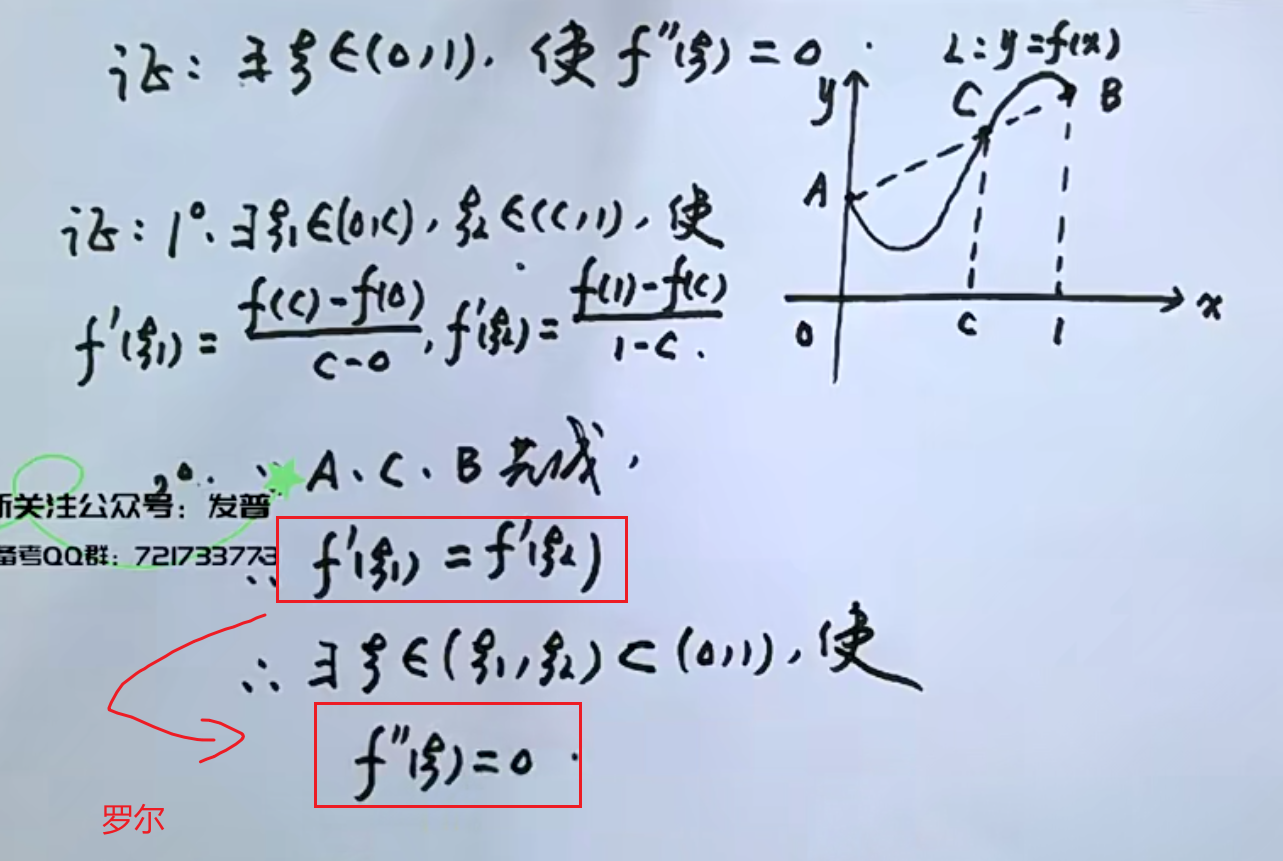 证: ∃ξ∈(0,1), 使 f''(ξ)=0.
L: y=f(x)
y
C
B
A
证: 1°. ∃ξ₁∈(0,c), ξ₂∈(c,1), 使
f'(ξ₁) = (f(c)-f(0))/(c-0), f'(ξ₂) = (f(1)-f(c))/(1-c).
0
c
1
x
2°. ∵ A、C、B 共线,
新关注公众号：发普
备考QQ群：721733773
∴ f'(ξ₁) = f'(ξ₂)
∴ ∃ξ∈(ξ₁,ξ₂)⊂(0,1), 使
f''(ξ)=0.
罗尔